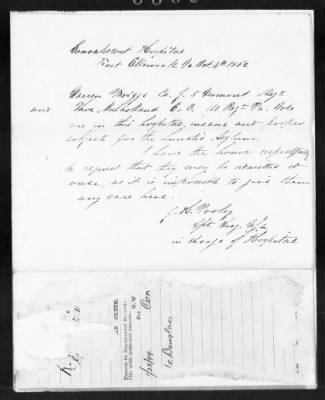 Convalescent Hospital
Fort Ellsworth Va Oct 4th 1862
Warren Briggs Co. J. 5 Vermont Regt
and Thos. Mulholland C. D. 110 Regt Pa. Vols
are in this hospital, insane and proper
subjects for the Lunatic Asylum.
I have the honor respectfully
to request that they may be admitted at
once, as it is impossible to give them
any care here.
J. H. Pooley
Surg.
in charge of Hospital
Reg
SOLDIER.
Papers in Regimental Records
filed with personal records, S.W.
For Con